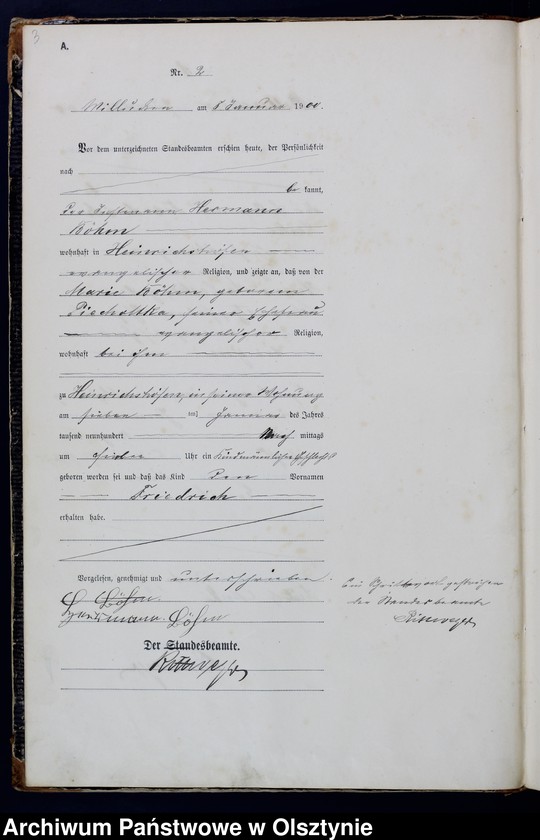 3
A.
Nr. 2
am 8 Januar 1900.
Vor dem unterzeichneten Standesbeamten erschien heute, der Persönlichkeit
nach
be kannt,
der Instmann Hermann
Böhm
wohnhaft in Heinrichshöfen
evangelischer Religion, und zeigte an, daß von der
Marie Böhm, geborenen
Piechottka, seiner Ehefrau
evangelischer Religion,
wohnhaft bei ihm
zu Heinrichshöfen in seiner Wohnung
am sieben ten Januar des Jahres
tausend neunhundert Nach mittags
um Uhr ein Kind männlichen Geschlechts
geboren worden sei und daß das Kind den Vornamen
Friedrich
erhalten habe.
Vorgelesen, genehmigt und unterschrieben.
Böhm.
Böhm
Der Standesbeamte.
gestrichen
der Standesbeamte
Archiwum Państwowe w Olsztynie